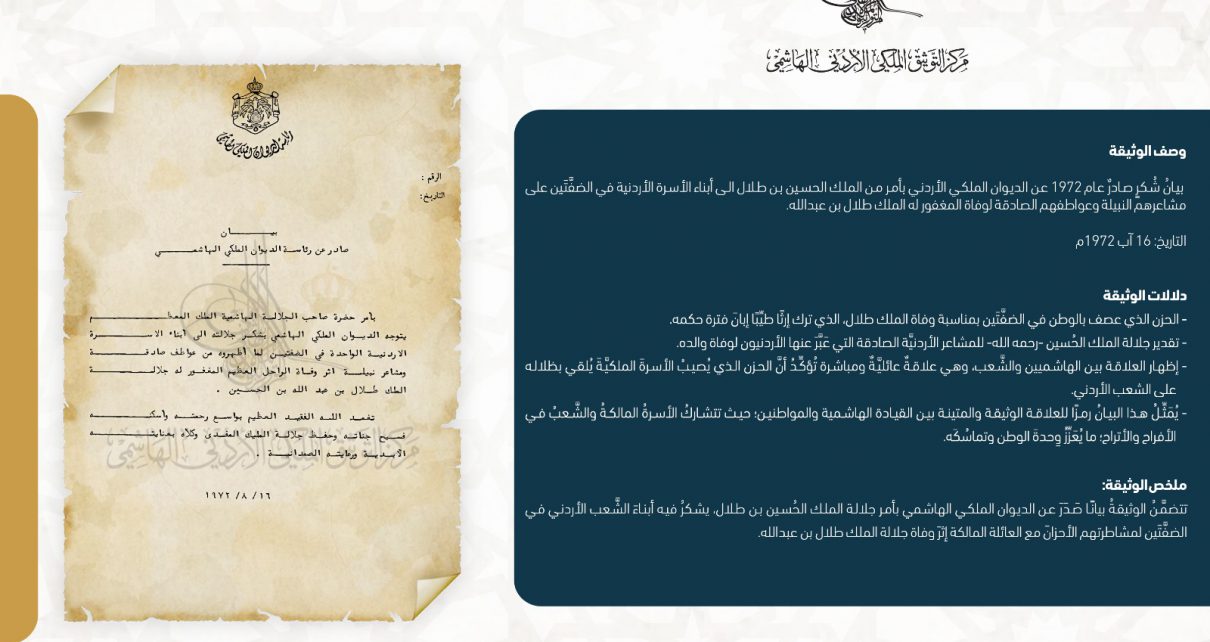 مركز التوثيق الملكي الأردني الهاشمي
وصف الوثيقة
بيانُ شُكرٍ صادرٌ عام 1972 عن الديوان الملكي الأردني بأمر من الملك الحسين بن طلال الى أبناء الأسرة الأردنية في الضفَّتَين على
مشاعرهم النبيلة وعواطفهم الصادقة لوفاة المغفور له الملك طلال بن عبدالله.
التاريخ: 16 آب 1972م
دلالات الوثيقة
- الحزن الذي عصف بالوطن في الضفَّتَين بمناسبة وفاة الملك طلال، الذي ترك إرثًا طيِّبًا إبانَ فترة حكمه.
- تقدير جلالة الملك الحُسين -رحمه الله- للمشاعر الأردنيَّة الصادقة التي عَبَّرَ عنها الأردنيون لوفاة والده.
- إظهار العلاقة بين الهاشميين والشَّعب، وهي علاقةٌ عائليَّةٌ ومباشرة تُؤكِّدُ أنَّ الحزن الذي يُصيبُ الأسرةَ الملكيَّةَ يُلقي بظلاله
على الشعب الأردني.
- يُمَثِّلُ هذا البيانُ رمزًا للعلاقة الوثيقة والمتينة بين القيادة الهاشمية والمواطنين؛ حيث تتشاركُ الأسرةُ المالكةُ والشَّعبُ في
الأفراح والأتراح؛ ما يُعَزِّزُ وحدةَ الوطن وتماسُكَه.
ملخص الوثيقة:
تتضمَّنُ الوثيقةُ بيانًا صَدَرَ عن الديوان الملكي الهاشمي بأمر جلالة الملك الحُسين بن طلال، يشكرُ فيه أبناءَ الشَّعب الأردني في
الضفَّتَين لمشاطرتهم الأحزانَ مع العائلة المالكة إثرَ وفاة جلالة الملك طلال بن عبدالله.
الرقم :
التاريخ :
بيـــــــان
صادر عن رئاسة الديوان الملكي الهاشمـــــي
بأمر حضرة صاحب الجلالة الهاشمية الملك المعظـــــم
يتوجه الديوان الملكي الهاشمي بشكر جلالته الى أبناء الاســـرة
الاردنية الواحدة في الضفتين لما أظهروه من عواطف صادقـــة
ومشاعر نبيلة اثر وفاة الراحل العظيم المغفور له جلالـــة
الملك طلال بن عبد الله بن الحسين .
تغمد اللـه الفقيد العظيم بواسع رحمتـه وأسكنـــه
فسيح جناته وحفظ جلالة المليك المفدى وكلأه بعنايتـــه
الابدية ورعايته الصمدانيـة .
١٦ /٨ /١٩٧٢
مركز التوثيق الملكي الأردني الهاشمي